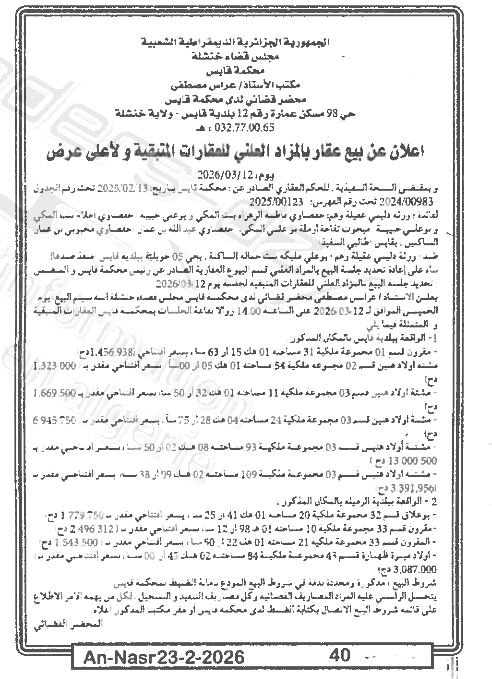 الجمهورية الجزائرية الديمقراطية الشعبية
مجلس قضاء خنشلة
محكمة قايس
مكتب الأستاذ/ عراس مصطفى
محضر قضائي لدى محكمة قايس
حي 98 مسكن عمارة رقم 12 بلدية قايس - ولاية خنشلة
هـ : 032.77.00.65
اعلان عن بيع عقار بالمزاد العلني للعقارات المتبقية ولأعلى عرض
يوم: 2026/03/12
و بمقتضى النسخة التنفيذية للحكم العقاري الصادر عن: محكمة قايس بتاريخ: 2025/02/13 تحت رقم الجدول
2024/00983 تحت رقم الفهرس: 2025/00123
لفائدة: ورثة دليمي عقيلة وهم: حفصاوي فاطمة الزهراء بنت المكي و بوعلي حبيبة حفصاوي
و بوعلي حبيبة تفاحة أرملة بوعلي المكي حفصاوي عبد الله بن عمار حفصاوي محبوبي بن عمار
الساكنين بقايس طالبي التنفيذ
ضد: ورثة دليمي عقيلة وهم: بوعلي مليكة بنت حمالة الساكنة بحي 05 جويلية بلدية قايس منفذ ضدها
بناء على إعادة تحديد جلسة البيع بالمزاد العلني قسم البيوع العقارية الصادر عن رئيس محكمة قايس و المتضمن
تحديد جلسة البيع بالمزاد العلني للعقارات المتبقية لجلسة يوم 2026/03/12
يعلن الأستاذ/ عراس مصطفى محضر قضائي لدى محكمة قايس مجلس قضاء خنشلة أنه سيتم البيع يوم
الخميس الموافق لـ 12-03-2026 على الساعة 14.00 زوالا بقاعة الجلسات بمحكمة قايس العقارات المتبقية
و المتمثلة فيما يلي
1- الواقعة ببلدية قايس بالمكان المذكور
- مقرون قسم 01 مجموعة ملكية 31 مساحته 01 هك 15 آر 63 سا، بسعر افتتاحي (1.456.938دج)
- مشتة أولاد هنين قسم 02 مجموعة ملكية 54 مساحته 01 هك 05 آر 00سا، بسعر افتتاحي مقدر بـ 1.323 000
دج)
- مشتة أولاد هنين قسم 03 مجموعة ملكية 11 مساحته 01 هك 32 آر 50 سا، بسعر افتتاحي مقدر بـ 1.669.500
دج)
- مشتة أولاد هنين قسم 03 مجموعة ملكية 24 مساحته 04 هك 28 آر 75 سا، بسعر افتتاحي مقدر بـ 6 945.750
دج)
- مشتة أولاد هنين قسم 03 مجموعة ملكية 93 مساحته 08 هك 02 آر 50 سا، بسعر افتتاحي مقدر بـ
13 000 500 دج)
- مشتة أولاد هنين قسم 03 مجموعة ملكية 109 مساحته 02 هك 09 آر 38 سا، بسعر افتتاحي مقدر بـ
3.391.956 دج)
2 - الواقعة ببلدية الرميلة بالمكان المذكور
- بوعلاق قسم 32 مجموعة ملكية 20 مساحته 01 هك 41 آر 25 سا، بسعر افتتاحي مقدر بـ 1 779.750 دج)
- مقرون قسم 33 مجموعة ملكية 10 مساحته 01 هك 98 آر 12 سا، بسعر افتتاحي مقدر بـ 2 496.312 دج)
- المقرون قسم 33 مجموعة ملكية 21 مساحته 01 هك 22 آر 50 سا، بسعر افتتاحي مقدر بـ 1.543.500 دج)
- أولاد ميرة قسم 43 مجموعة ملكية 84 مساحته 02 هك 45 آر 00 سا، بسعر افتتاحي مقدر بـ
3,087.000 دج)
شروط البيع: مذكورة و محددة بدقة في شروط البيع المودع بأمانة الضبط بمحكمة قايس
يتحمل الراسي عليه المزاد المصاريف القضائية وكل مصاريف التنفيذ و التسجيل، لكل من يهمه الأمر الاطلاع
على قائمة شروط البيع الاتصال بكتابة الضبط لدى محكمة قايس أو مقر مكتبنا المذكور أعلاه.
المحضر القضائي
An-Nasr23-2-2026 40